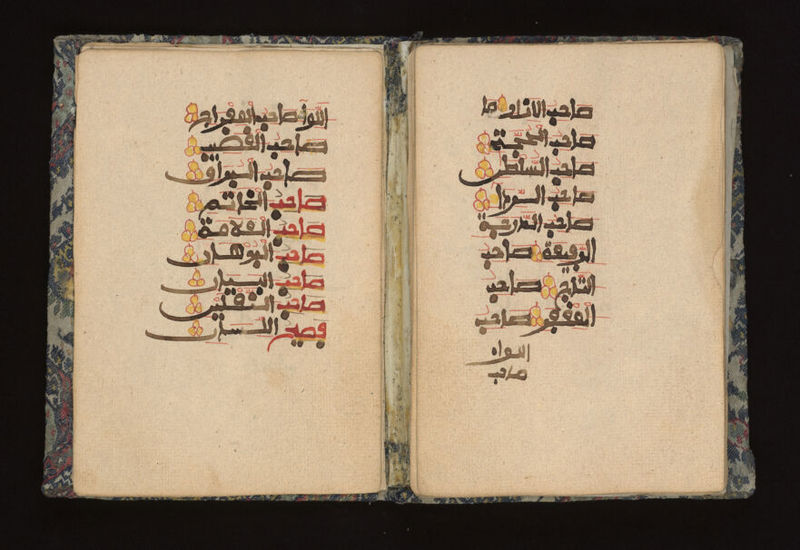 صاحب الازار
صاحب الحجة
صاحب السلطن
صاحب الردا
صاحب الدرجة
الرفيعة صاحب
التاج صاحب
المغفر صاحب
اللواء
صاحب
اللوا صاحب المعراج
صاحب القضيب
صاحب البراق
صاحب الخاتم
صاحب العلامة
صاحب البرهان
صاحب البيان
صاحب
فصيح اللسان